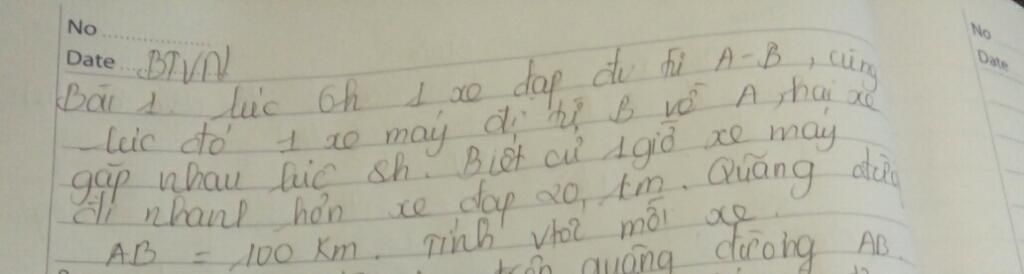 No
Date BTVN
Bài 1. lúc 6h 1 xe đạp đi từ A-B, cùng
lúc đó 1 xe máy đi từ B về A, hai xe
gặp nhau lúc 8h. Biết cứ 1 giờ xe máy
đi nhanh hơn xe đạp 20, km. Quãng đường
AB = 100 Km. Tính vtốc mỗi xe.
trên quãng đường AB
No
Date